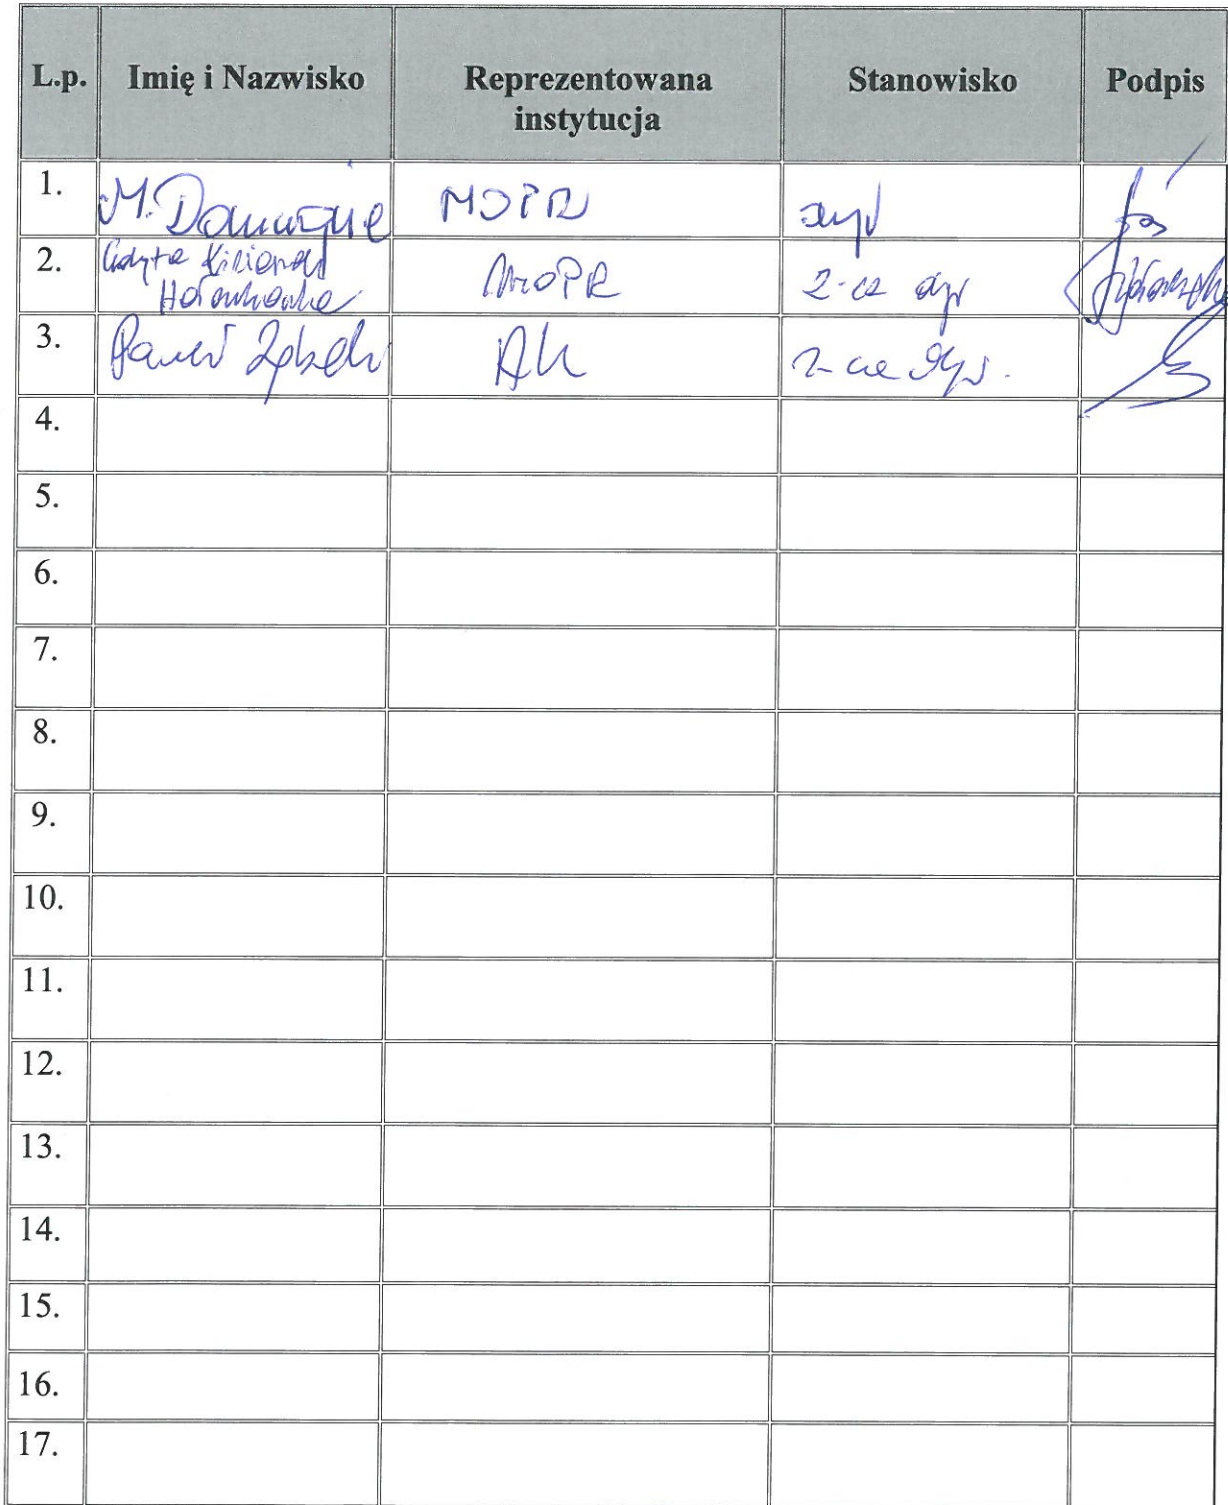 L.p. Imię i Nazwisko Reprezentowana instytucja Stanowisko Podpis
1. M. MOPR
2. MOPR z-ca dyr
3. Paweł z-ca dyr.
4.
5.
6.
7.
8.
9.
10.
11.
12.
13.
14.
15.
16.
17.